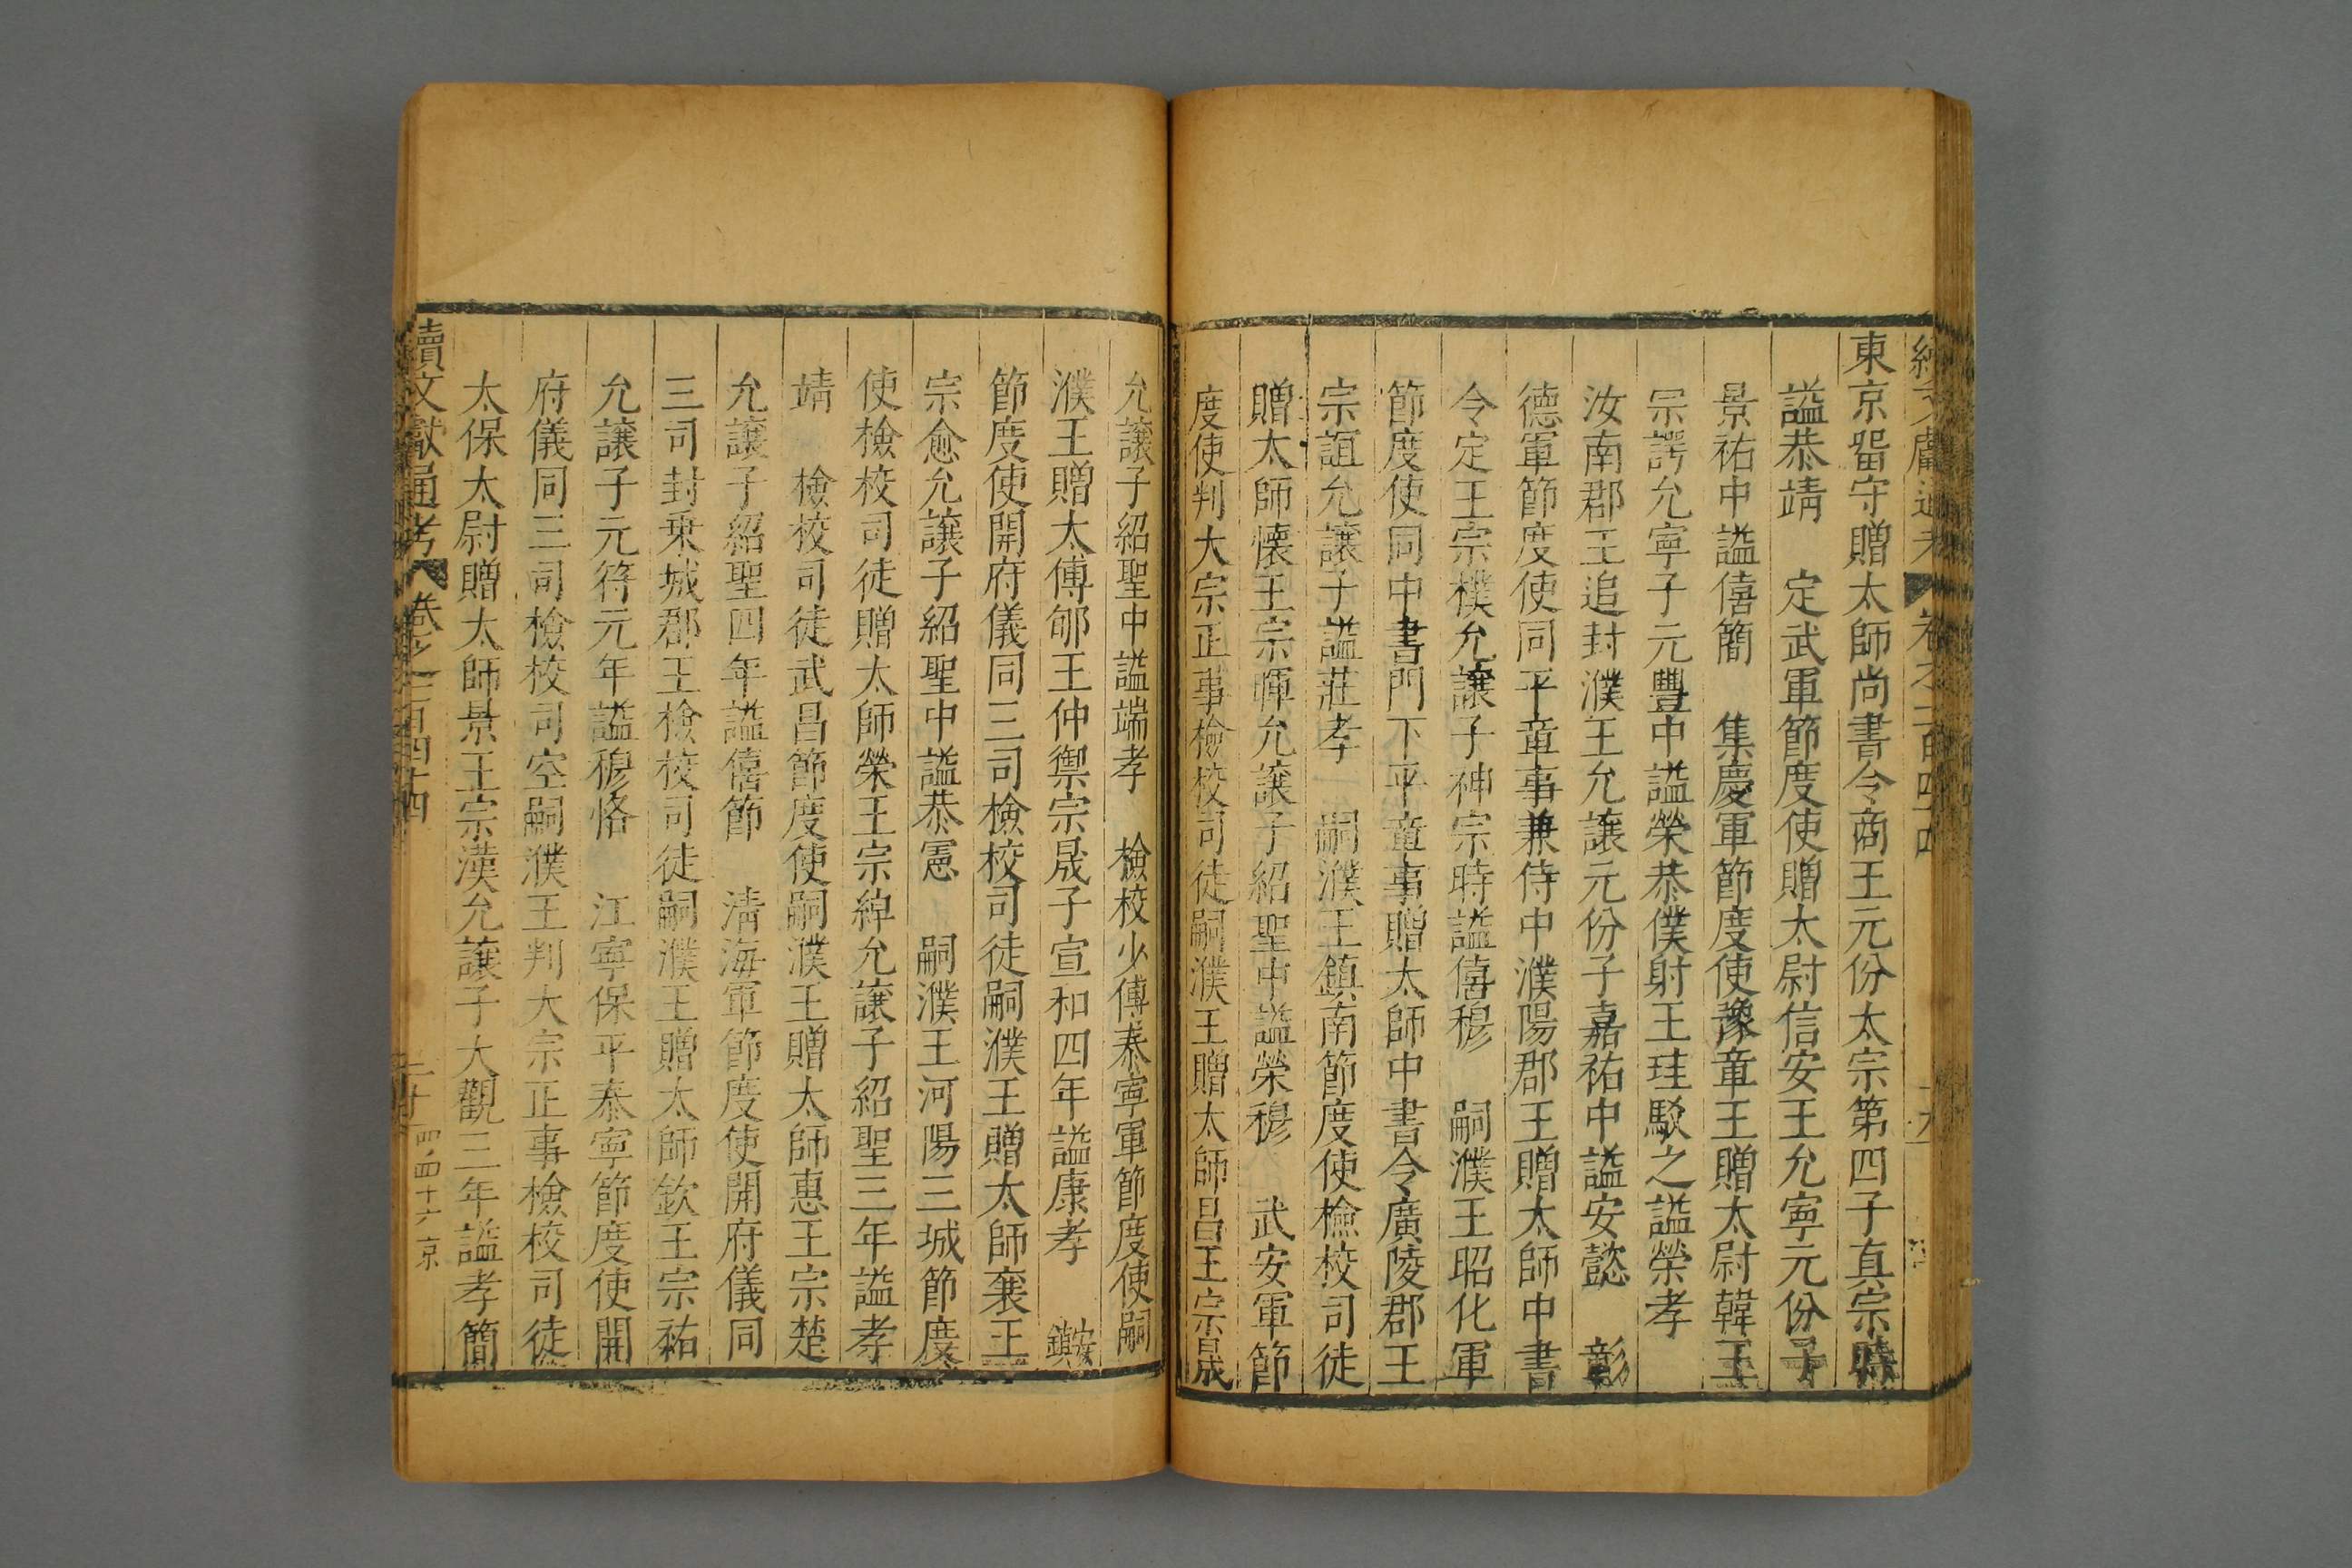 東京畱守贈太師尚書令商王元份太宗第四子真宗時
謚恭靖　定武軍節度使贈太尉信安王允寧元份子
景祐中謚僖簡　集慶軍節度使豫章王贈太尉韓王
宗諤允寧子元豐中謚榮恭僕射王珪駮之謚榮孝
汝南郡王追封濮王允讓元份子嘉祐中謚安懿　彰
德軍節度使同平章事兼侍中濮陽郡王贈太師中書
令定王宗樸允讓子神宗時謚僖穆　嗣濮王昭化軍
節度使同中書門下平章事贈太師中書令廣陵郡王
宗誼允讓子謚莊孝　嗣濮王鎮南節度使檢校司徒
贈太師懷王宗暉允讓子紹聖中謚榮穆　武安軍節
度使判大宗正事檢校司徒嗣濮王贈太師昌王宗晟
允讓子紹聖中謚端孝　檢校少傅泰寧軍節度使嗣
濮王贈太傅郇王仲御宗晟子宣和四年謚康孝　安鎮
節度使開府儀同三司檢校司徒嗣濮王贈太師襄王
宗愈允讓子紹聖中謚恭憲　嗣濮王河陽三城節度
使檢校司徒贈太師榮王宗綽允讓子紹聖三年謚孝
靖　檢校司徒武昌節度使嗣濮王贈太師惠王宗楚
允讓子紹聖四年謚僖節　清海軍節度使開府儀同
三司封乗城郡王檢校司徒嗣濮王贈太師欽王宗祐
允讓子元符元年謚穆恪　江寧保平泰寧節度使開
府儀同三司檢校司空嗣濮王判大宗正事檢校司徒
太保太尉贈太師景王宗漢允讓子大觀三年謚孝簡
續文獻通考　卷之一百四十四　二十　四四十六京